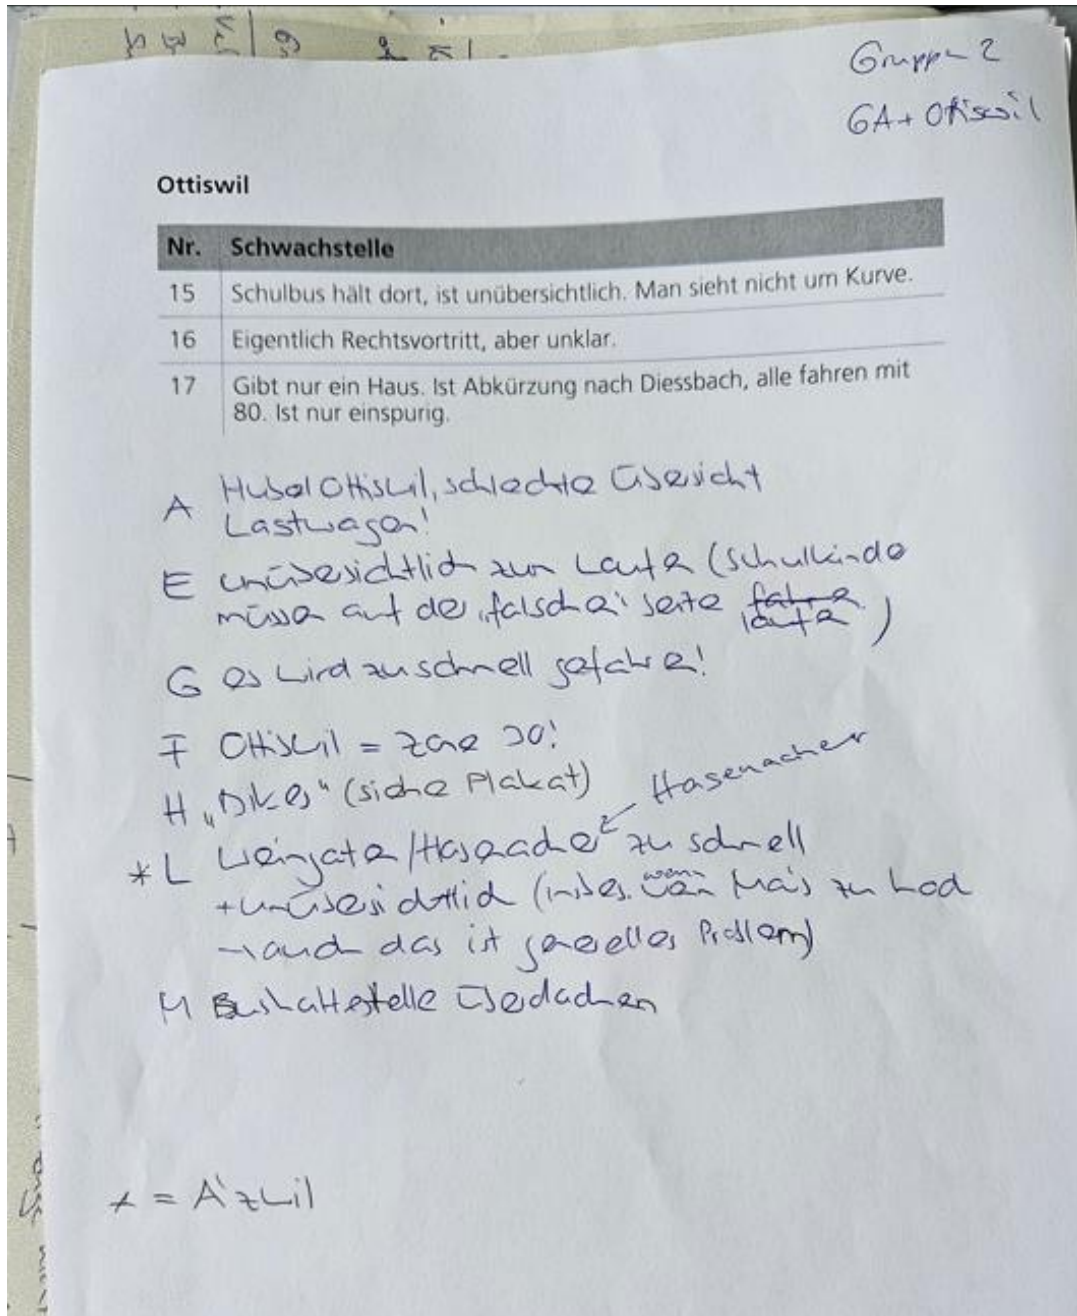 Gruppe 2
GA + Ottiswil
Ottiswil
Nr. Schwachstelle
15 Schulbus hält dort, ist unübersichtlich. Man sieht nicht um Kurve.
16 Eigentlich Rechtsvortritt, aber unklar.
17 Gibt nur ein Haus. Ist Abkürzung nach Diessbach, alle fahren mit
80. Ist nur einspurig.
A Hubel Ottiswil, schlechte Übersicht
Lastwagen!
E unübersichtlich zum Laufen (Schulkinder
müssen auf der „falschen" Seite fahren
laufen)
G es wird zu schnell gefahren!
F Ottiswil = Zone 30!
H (siehe Plakat)
Hasenacher
*L Weingarten/Hasenacher zu schnell
+ unübersichtlich (insbes. wenn Mais zu hoch
→ auch das ist generelles Problem)
M Bushaltestelle überdachen
* = A'zwil